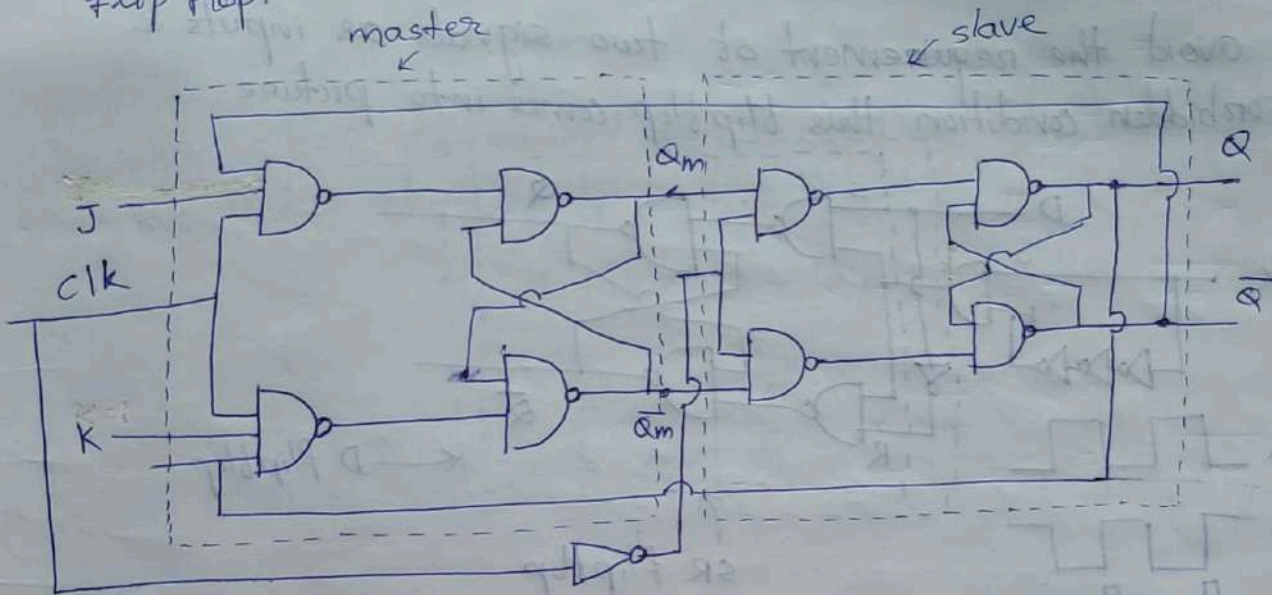 Flip flop.
master
slave
J
Clk
K
Qm
Q̅m̅
Q
Q̅